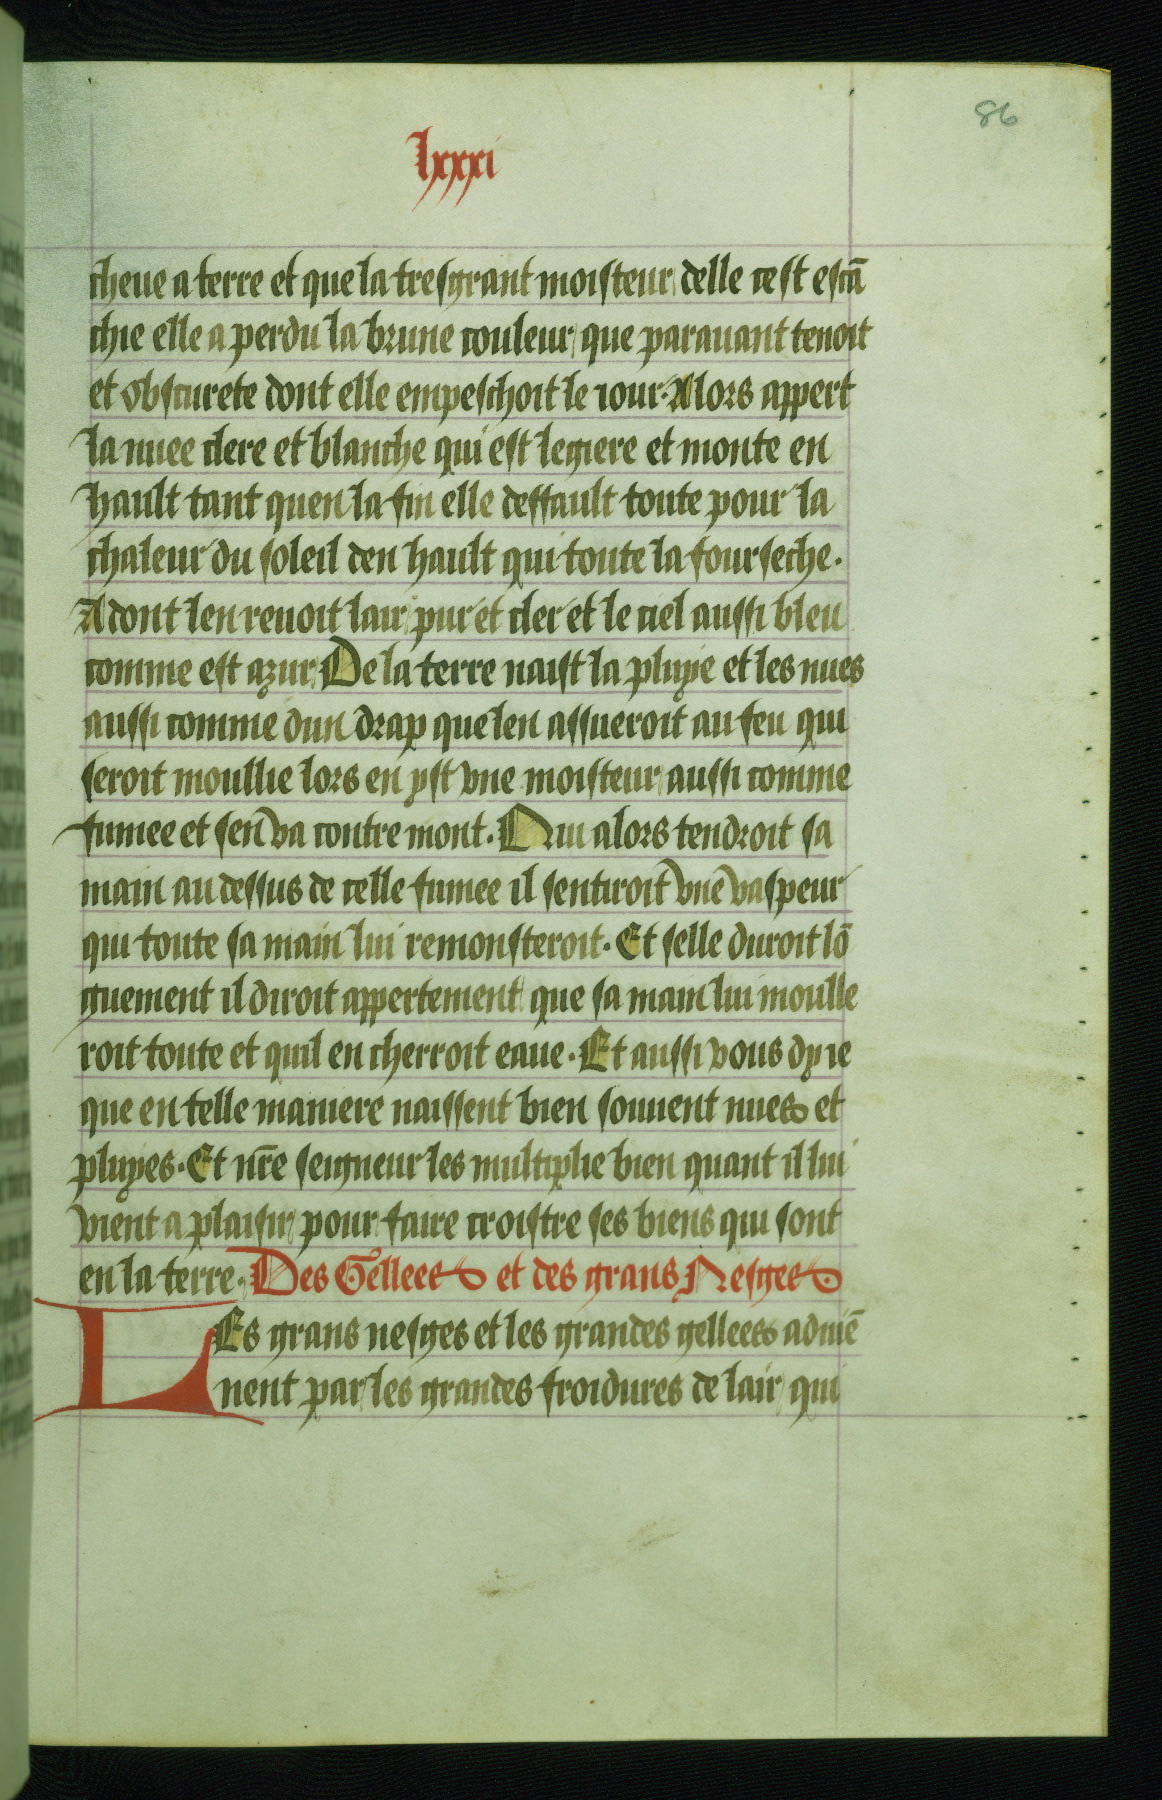 86
lxxxi
cheue a terre et que la tresgrant moisteur delle cest escā
chie elle a perdu la brune couleur que parauant tenoit
et obscurete dont elle empeschoit le iour. Alors appert
la nuee clere et blanche qui est legiere et monte en
hault tant quen la fin elle deffault toute pour la
chaleur du soleil den hault qui toute la fourseche.
Adont len reuoit lair pur et cler et le ciel aussi bleu
comme est azur. De la terre naist la pluyie et les nues
aussi comme dun drap que len assueroit au feu qui
seroit moullie lors en yst vne moisteur aussi comme
fumee et sen va contre mont. Qui alors tendroit sa
main au dessus de celle fumee il sentiroit vne vaspeur
qui toute sa main lui remonsteroit. Et selle duroit lō
guement il diroit appertement que sa main lui moulle
roit toute et quil en cherroit eaue. Et aussi vous dy ie
que en telle maniere naissent bien souuent nues et
pluyes. Et nr̄e seigneur les multiplie bien quant il lui
vient a plaisir pour faire croistre ses biens qui sont
en la terre. Des Gellees et des grans Nesges
Les grans nesges et les grandes gellees aduiē
nent par les grandes froidures de lair qui